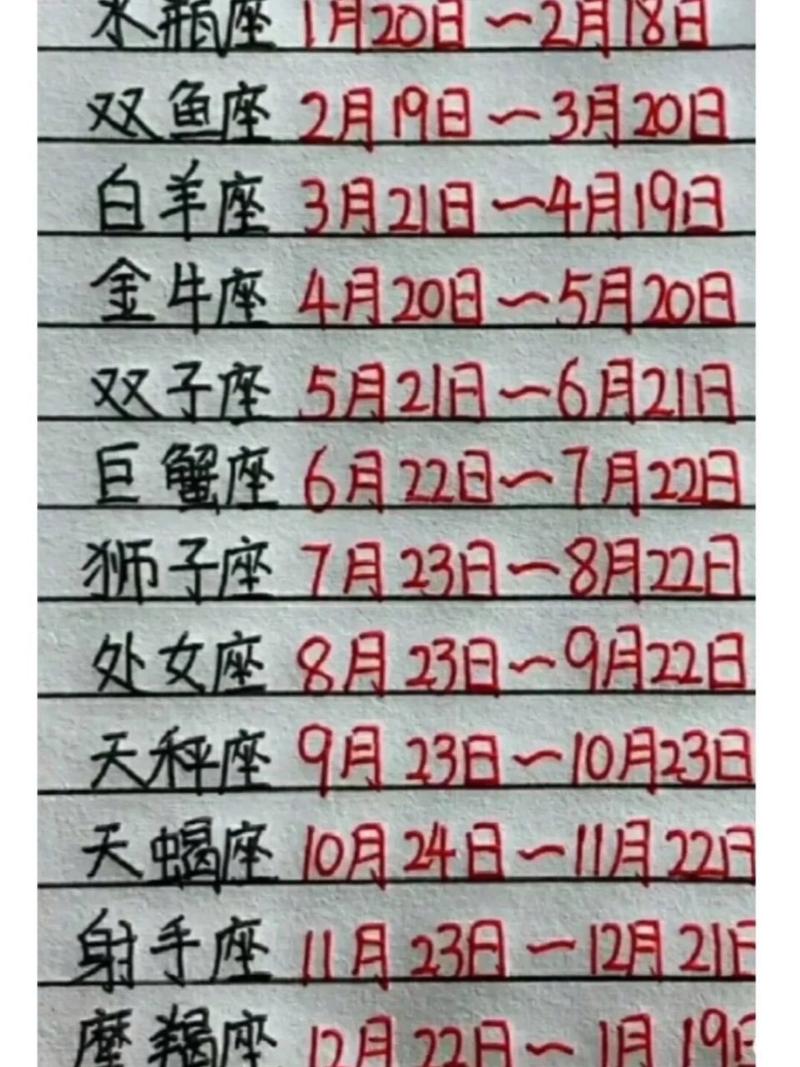 水瓶座 1月20日～2月18日
双鱼座 2月19日～3月20日
白羊座 3月21日～4月19日
金牛座 4月20日～5月20日
双子座 5月21日～6月21日
巨蟹座 6月22日～7月22日
狮子座 7月23日～8月22日
处女座 8月23日～9月22日
天秤座 9月23日～10月23日
天蝎座 10月24日～11月22日
射手座 11月23日～12月21日
摩羯座 12月22日～1月19日